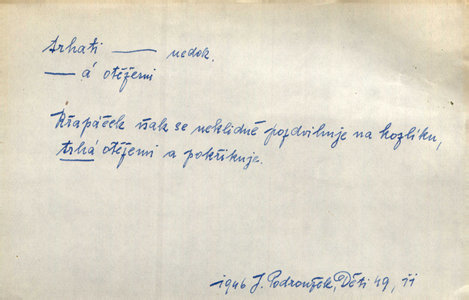 trhati —— nedok.
— á otěžemi
Křapáček však se neklidně pozdvihuje na kozlíku,
trhá otěžemi a pokřikuje.
1946 J. Podroužek, Děti 49, ii